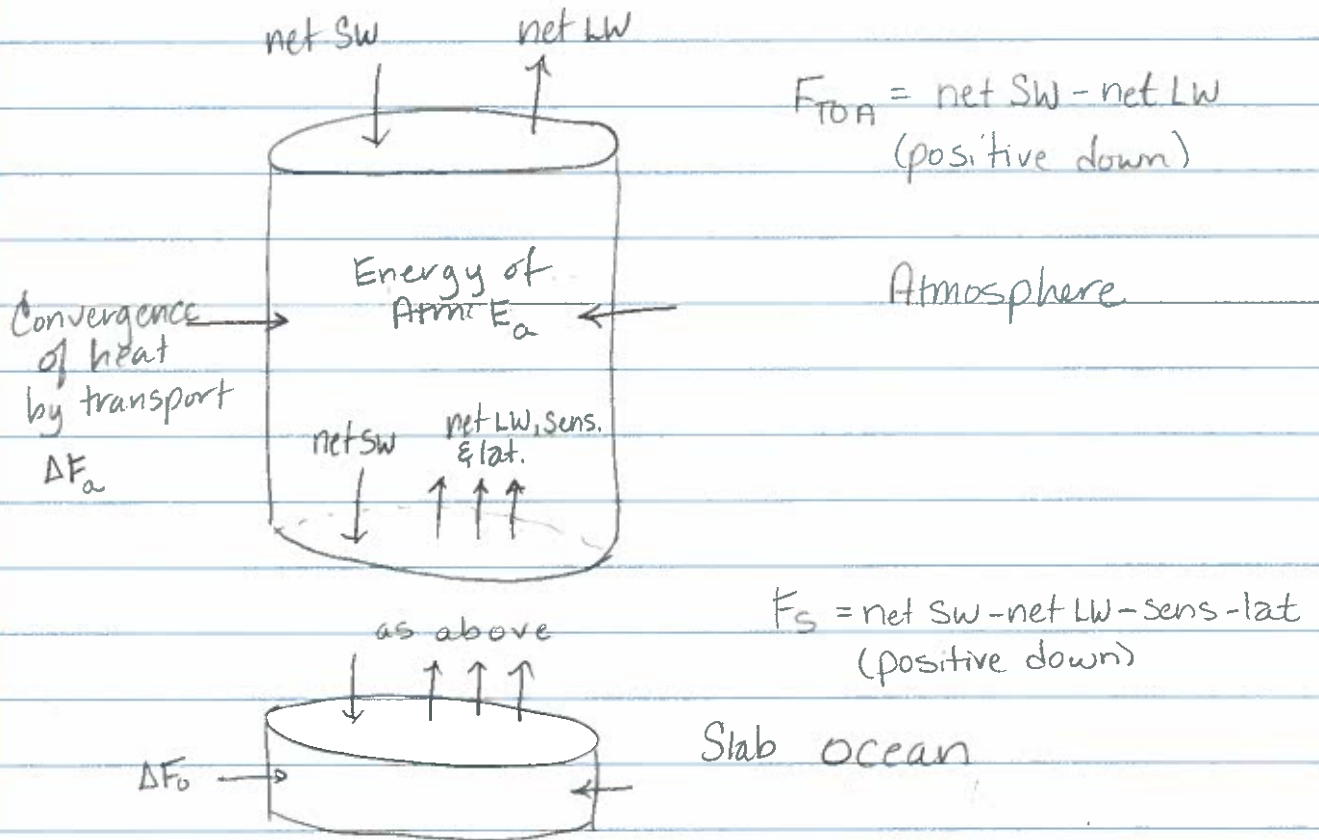 net SW net LW
F_TOA = net SW - net LW
(positive down)
Energy of
Atm E_a
Atmosphere
Convergence
of heat
by transport
ΔF_a
net SW net LW, sens.
& lat.
F_S = net SW - net LW - sens - lat
(positive down)
as above
Slab ocean
ΔF_o